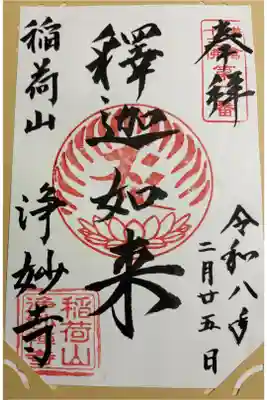 奉拝
令和八年
二月廿五日
釋迦如来
稲荷山
浄妙寺
稲荷山